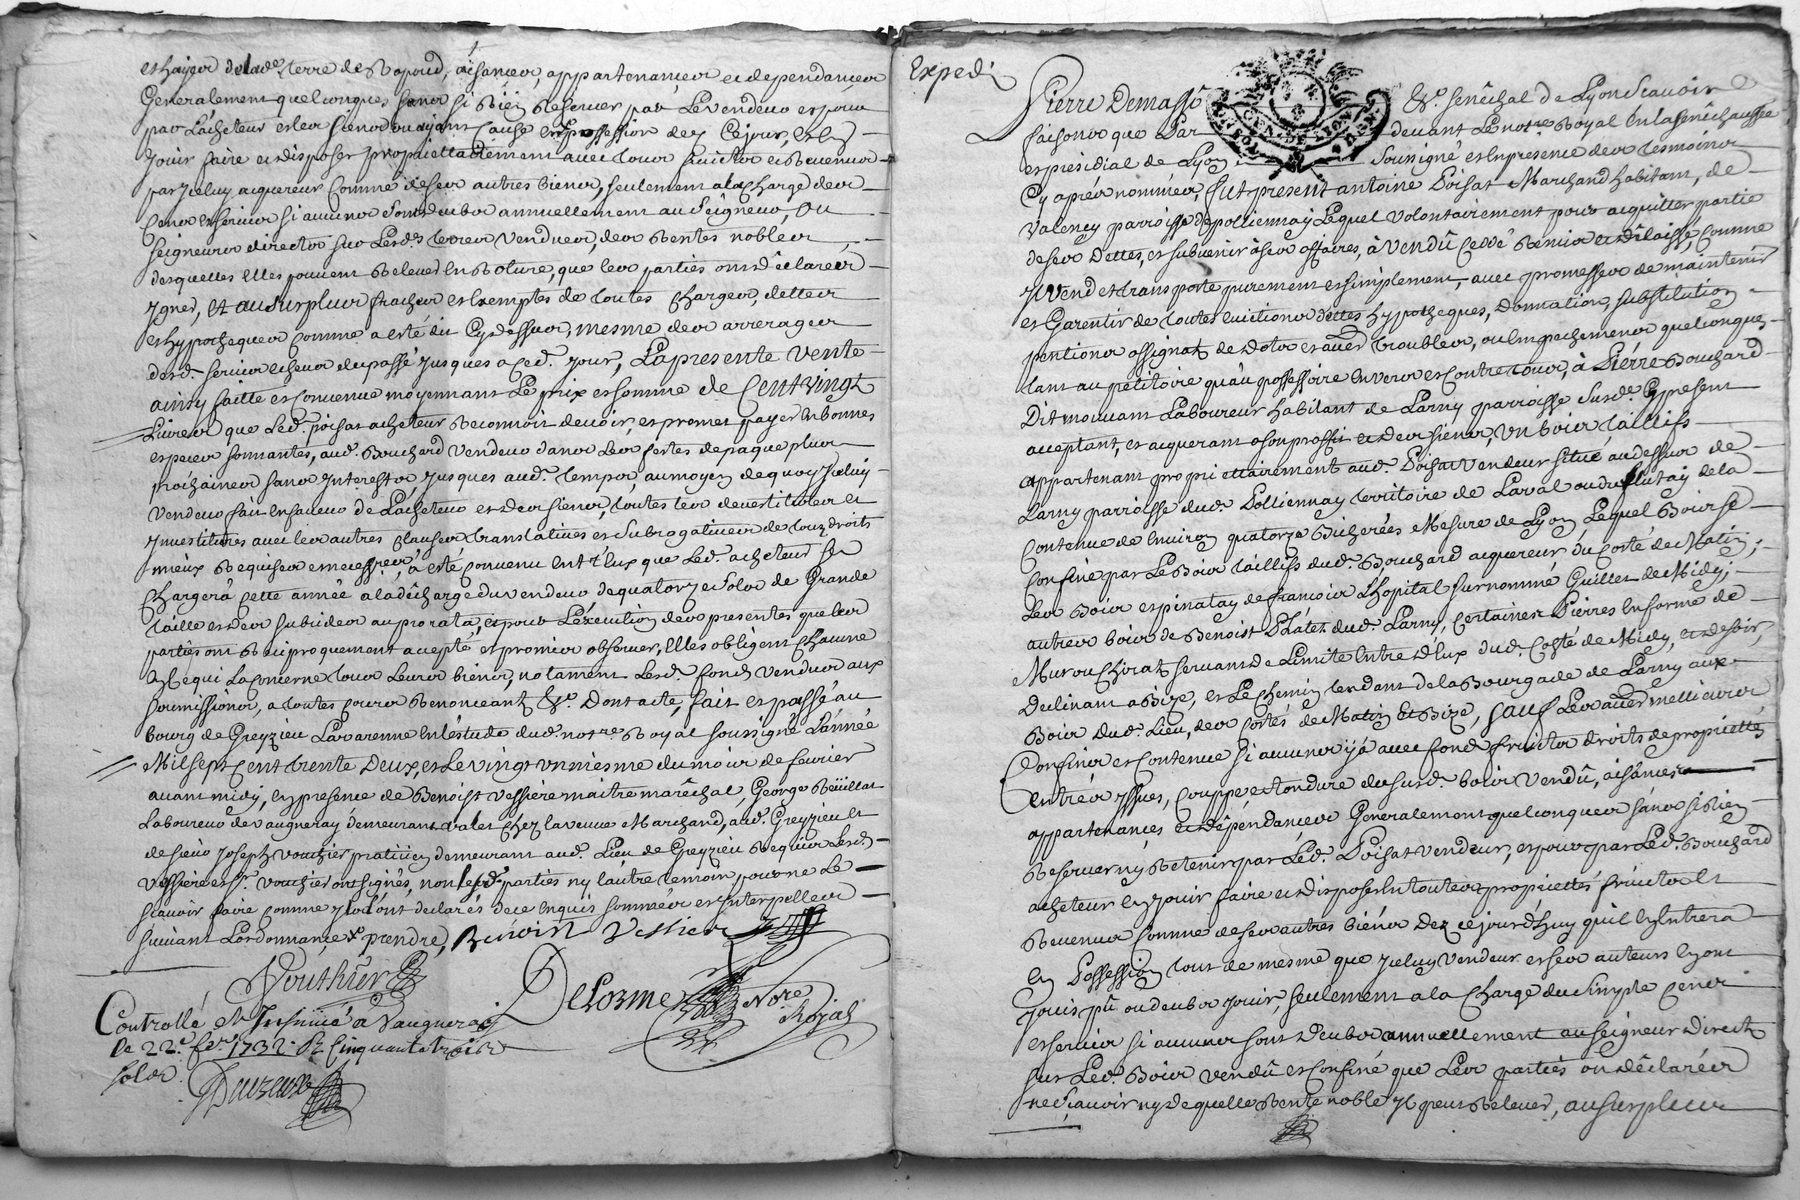 et hayes de lad.e terre de Rapoud, aisances, appartenances et dependances
Generalement quelconques sans si bien Reserver par Le vendeur et pour
par L'acheteur et les siens ou ayant cause en possession dez Ce jour, et en
Jouir faire et disposer propriettairement avec tous fruicts et Revenus
par Iceluy acquereur Comme de ses autres biens, seulement a la charge des
Cens et service si aucuns sont deubs annuellement au Seigneur, ou
Seigneurs directs sur Lesd.s terres vendues, des Rentes nobles
desquelles Elles peuvent Relever En Roture, que les parties ont déclarées
Ignorer, Et au surplus franches et Exemptes de toutes charges, dettes
et hypotheques comme a esté dit Cy dessus, mesme des arrerages
desd. services echeus du passé Jusques a ced. Jour, La presente vente
ainsy faitte et convenue moyennant Le prix et somme de Cent vingt
Livres que Led. poisat acheteur Reconnoit devoir, et promet payer En bonnes
especes sonnantes, aud. Bouchard vendeur dans Les festes de paque plus
prochaines sans Interests Jusques aud. temps, au moyen de quoy Iceluy
vendeur fait En faveur de L'acheteur et des siens, toutes les devestitures et
Investitures avec les autres clauses translatives et subrogatives de tous droits
mieux Requises et necessres, a esté convenu entr'Eux que Led. acheteur se
chargera cette année a la décharge du vendeur de quatorze sols de Grande
taille et des subsides au prorata, et pour L'éxecution des presentes que les
parties ont Reciproquement accepté et promis observer, Elles obligent chacune
En ce qui La Concerne tous Leurs biens, notament Lesd. fonds vendus aux
soumissions, a toutes cours Renonceant &c. Dont acte, fait et passé au
bourg de Greyzieu Lavarenne En L'éstude dud. not.re Royal soussigné L'année
Mil sept Cent trente Deux, et Le vingt unniesme du mois de fevrier
avant midy, En presence de Benoist vessiere maitre maréchal, George
Laboureur de vaugneray demeurant valet chez la veuve Marchand, aud. Greyzieu et
de sieur Joseph vouthier praticien demeurant aud. Lieu de Greyzieu Requis Lesd.
vessiere et sr. vouthier ont signés, non Lesd. parties ny l'autre temoin pour ne Le
scavoir faire comme Ils ont declarés de ce enquis sommées et Interpellées
suivant L'ordonnance &c prendre, Benoit Vessier
Vouthier
Delorme Nore Royal
Controllé et Insinué à Vaugneray
Le 22.e fev.r 1732. R. Cinquante trois
sols
Dauzeur
Exped.
Pierre Demasso &c. senéchal de Lyon Scavoir
faisons que Par devant Le not.re Royal En la sénéchaussée
et présidial de Lyon Soussigné et En presence des tesmoins
Cy apres nommes, fut present antoine Poisat Marchand habitant, de
Valency parroisse de polliennay Lequel volontairement pour acquitter partie
de ses Dettes, et subvenir à ses affaires, à vendû Ceddé Remis et délaissé, comme
Il vend et transporte purement et simplement, avec promesse de maintenir
et Garentir de toutes evictions dettes hypotheques, Donnation, substitution
pentions assignats de dots et autres troubles, ou Empechemens quelconques
tant au petitoire qu'au possessoire Envers et contre tous, à Pierre Bouchard
Dit mouvant Laboureur habitant de Larny parroisse susd. Cy present
acceptant, et acquerant a son proffit et des siens, un bois taillifs
appartenant propriettairement aud. Poisat vendeur situé au dessus de
Larny parroisse dud. Polliennay territoire de Laval ou du
Contenue de Environ quatorze Bicherées Mesure de Lyon, Lequel Bois se
Confine par Le Bois taillifs dud. Bouchard acquereur, du Costé de Matin;
Les Bois espinatay de francois L'hopital surnommé Guillet de Midy;
autres bois de Benoist dud. Larny, certaines Pierres En forme de
Mur ou Chirat servants de Limite Entre Eux dud. Costé de Midy, et de soir,
Declinant a Bize, et Le chemin tendant de la Bourgade de Larny aux
Bois dud. Lieu, des costés de Matin Et Bize, sauf Les autres meilleurs
Confins et contenue si aucuns y a avec fonds fruicts droits de propriettés
Entrées Issues, couppe, et tondure du susd. bois vendû, aisances
appartenances et dépendances Generalement quelconques sans si bien
Reserver ny Retenir par Led. Poisat vendeur, et pour par Led. Bouchard
acheteur en Jouir faire et disposer En toutes propriettés fruicts et
Revenus Comme de ses autres biens Dez ce jourd'huy qu'il En Entrera
En Possession tout de mesme que Iceluy vendeur et ses auteurs En ont
Jouis pû ou deubs Jouir, seulement a la charge du simple Cens
et service si aucuns sont deubs annuellement au seigneur direct
sur Led. Bois vendû et Confiné que Les parties ont déclarées
ne scavoir ny de quelle Rente noble Il peut Relever, au surplus